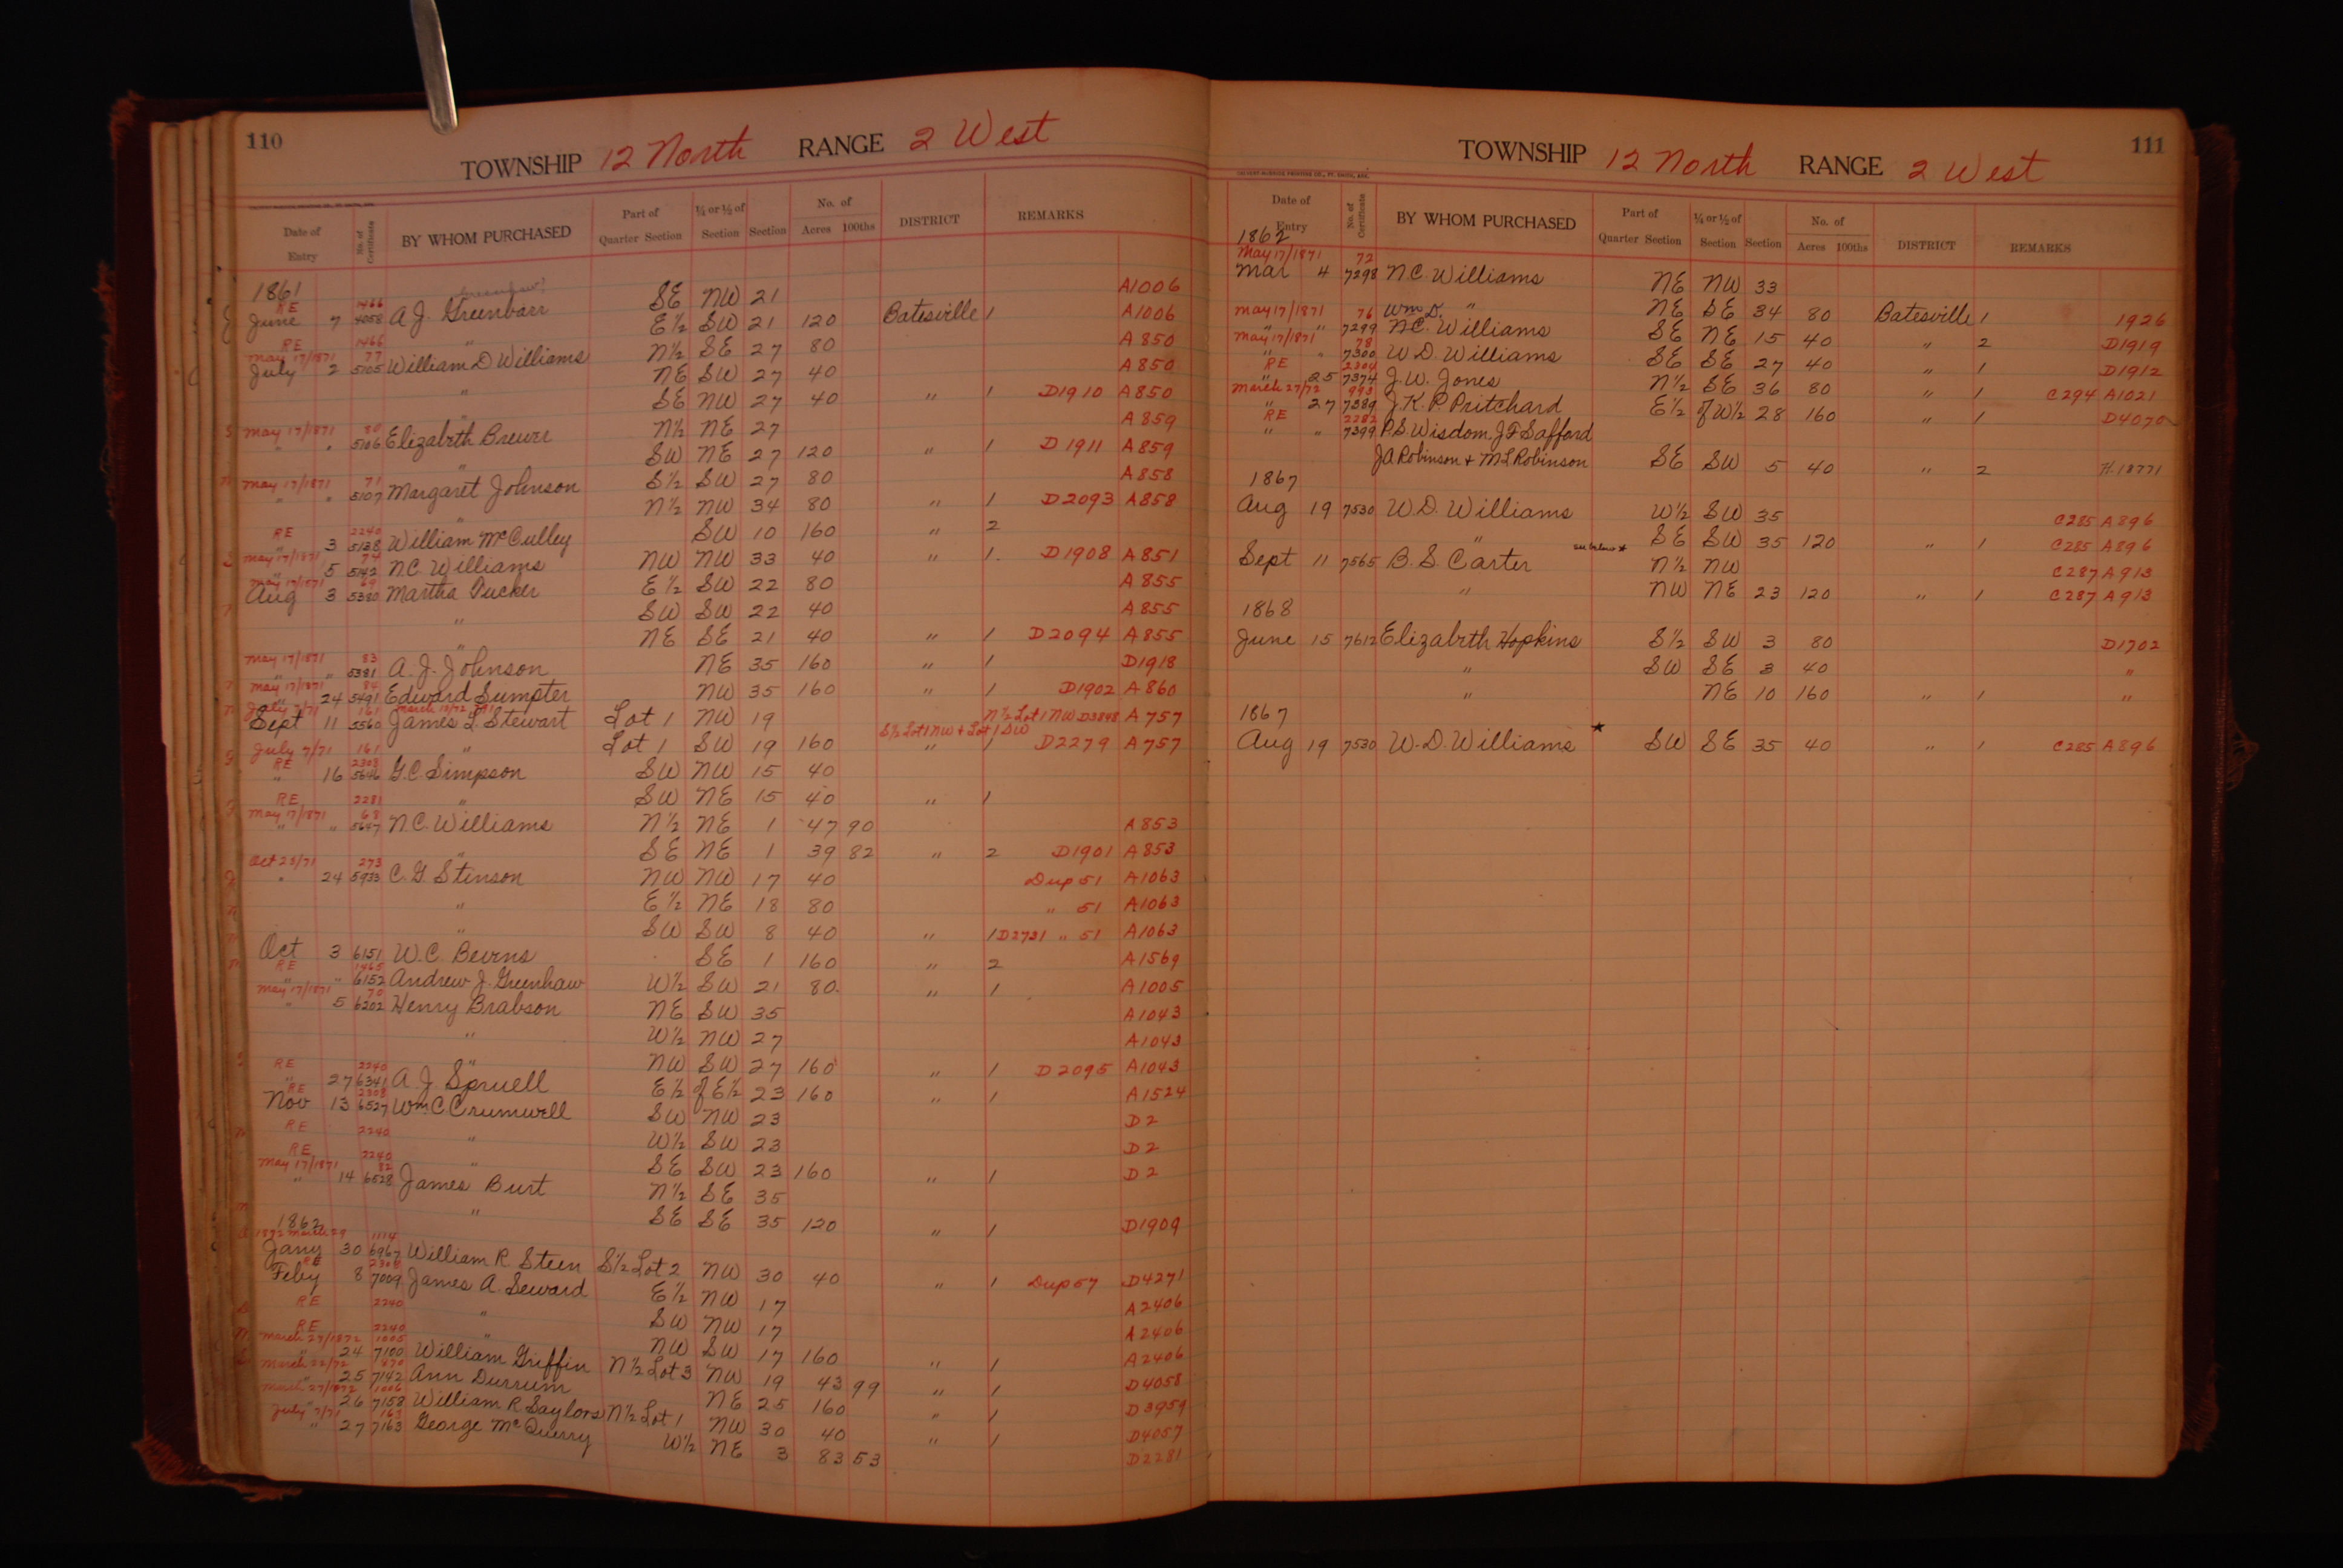 110
TOWNSHIP 12 North RANGE 2 West
Date of Entry No. of Certificate BY WHOM PURCHASED Part of Quarter Section ¼ or ½ of Section Section No. of Acres 100ths DISTRICT REMARKS
1861 SE NW 21 A1006
RE 1466
June 7 4058 A.J. Greenbarr E½ SW 21 120 Batesville 1 A1006
RE 1466 " N½ SE 27 80 A850
May 17/1871 77
July 2 5105 William D Williams NE SW 27 40 A850
" SE NW 27 40 " 1 D1910 A850
N½ NE 27 A859
May 17/1871 80
" " 5106 Elizabeth Brewer SW NE 27 120 " 1 D1911 A859
" S½ SW 27 80 A858
May 17/1871 71
" " 5107 Margaret Johnson N½ NW 34 80 " 1 D2093 A858
" SW 10 160 " 2
RE 2240
" 3 5138 William McCulley NW NW 33 40 " 1 D1908 A851
May 17/1871 74
" 5 5142 N.C. Williams E½ SW 22 80 A855
May 17/1871 69
Aug 3 5380 Martha Tucker SW SW 22 40 A855
" NE SE 21 40 " 1 D2094 A855
" NE 35 160 " 1 D1918
May 17/1871 83
" " 5381 A.J. Johnson NW 35 160 " 1 D1902 A860
May 17/1871 84
" 24 5491 Edward Sumpter Lot 1 NW 19 N½ Lot 1 NW D3848 A757
July 7/71 161 March 18/72 891
Sept 11 5560 James L. Stewart Lot 1 SW 19 160 S½ Lot 1 NW + Lot 1 SW " 1 D2279 A757
July 7/71 161 "
RE 2308
" 16 5646 G.C. Simpson SW NW 15 40
RE 2281 " SW NE 15 40 " 1
May 17/1871 68
" " 5647 N.C. Williams N½ NE 1 47 90 A853
" SE NE 1 39 82 " 2 D1901 A853
Oct 25/71 273
" 24 5933 C.G. Stinson NW NW 17 40 Dup 51 A1063
" E½ NE 18 80 " 51 A1063
" SW SW 8 40 " 1 D2731 " 51 A1063
Oct 3 6151 W.C. Bevens SE 1 160 " 2 A1569
RE 1465
" " 6152 Andrew J. Greenhaw W½ SW 21 80 " 1 A1005
May 17/1871 70
" 5 6202 Henry Brabson NE SW 35 A1043
" W½ NW 27 A1043
" NW SW 27 160 " 1 D2095 A1043
RE 2240
" 27 6341 A.J. Spruell E½ of E½ 23 160 " 1 A1524
RE 2308
Nov 13 6527 Wm C Crumwell SW NW 23 D2
RE 2240 " W½ SW 23 D2
RE 2240 " SE SW 23 160 " 1 D2
May 17/1871 82
" 14 6528 James Burt N½ SE 35
" SE SE 35 120 " 1 D1909
1862
1872 March 29 1114
Jany 30 6967 William R. Steen S½ Lot 2 NW 30 40 " 1 Dup 57 D4271
RE 2308
Feby 8 7009 James A. Seward E½ NW 17 A2406
RE 2240 " SW NW 17 A2406
RE 2240 " NW SW 17 160 " 1 A2406
March 27/1872 1005
" 24 7100 William Griffin N½ Lot 3 NW 19 43 99 " 1 D4058
March 22/72 870
" 25 7142 Ann Durrum NE 25 160 " 1 D3959
March 27/1872 1006
" 26 7158 William R Saylors N½ Lot 1 NW 30 40 " 1 D4057
July 7/71 163
" 27 7163 George McQuerry W½ NE 3 83 53 D2281
111
TOWNSHIP 12 North RANGE 2 West
Date of Entry No. of Certificate BY WHOM PURCHASED Part of Quarter Section ¼ or ½ of Section Section No. of Acres 100ths DISTRICT REMARKS
1862
May 17/1871 72
Mar 4 7298 N.C. Williams NE NW 33
Wm D. " NE SE 34 80 Batesville 1 1926
May 17/1871 76
" " 7299 N.C. Williams SE NE 15 40 " 2 D1919
May 17/1871 78
" " 7300 W.D. Williams SE SE 27 40 " 1 D1912
RE 2304
" 25 7374 J.W. Jones N½ SE 36 80 " 1 C294 A1021
March 27/72 993
" 27 7389 J.K.P. Pritchard E½ of W½ 28 160 " 1 D4070
RE 2282
" " 7399 P.S. Wisdom, J.F. Safford
J.A Robinson + M.L Robinson SE SW 5 40 " 2 H.18771
1867
Aug 19 7530 W.D. Williams W½ SW 35 C285 A896
" see below ★ SE SW 35 120 " 1 C285 A896
Sept 11 7565 B.S. Carter N½ NW C287 A913
" NW NE 23 120 " 1 C287 A913
1868
June 15 7612 Elizabeth Hopkins S½ SW 3 80 D1702
" SW SE 3 40 "
" NE 10 160 " 1 "
1867
Aug 19 7530 W.D. Williams ★ SW SE 35 40 " 1 C285 A896